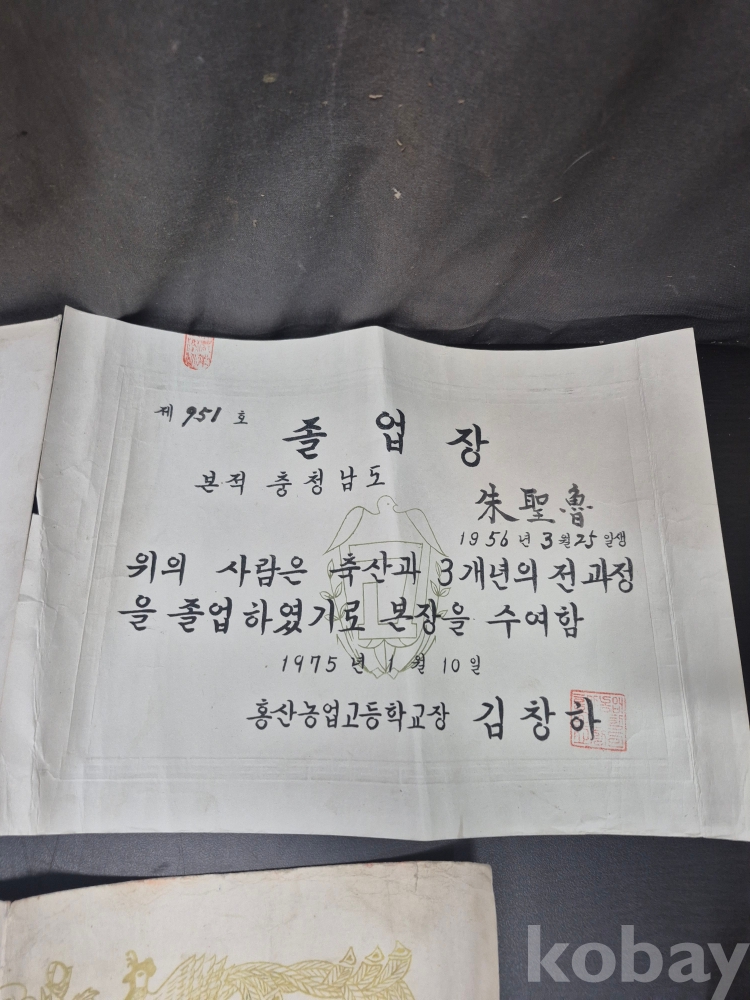 제 951 호
졸업장
본적 충청남도
朱聖魯
1956년 3월 25일생
위의 사람은 축산과 3개년의 전과정
을 졸업하였기로 본장을 수여함
1975년 1월 10일
홍산농업고등학교장 김창하
kobay